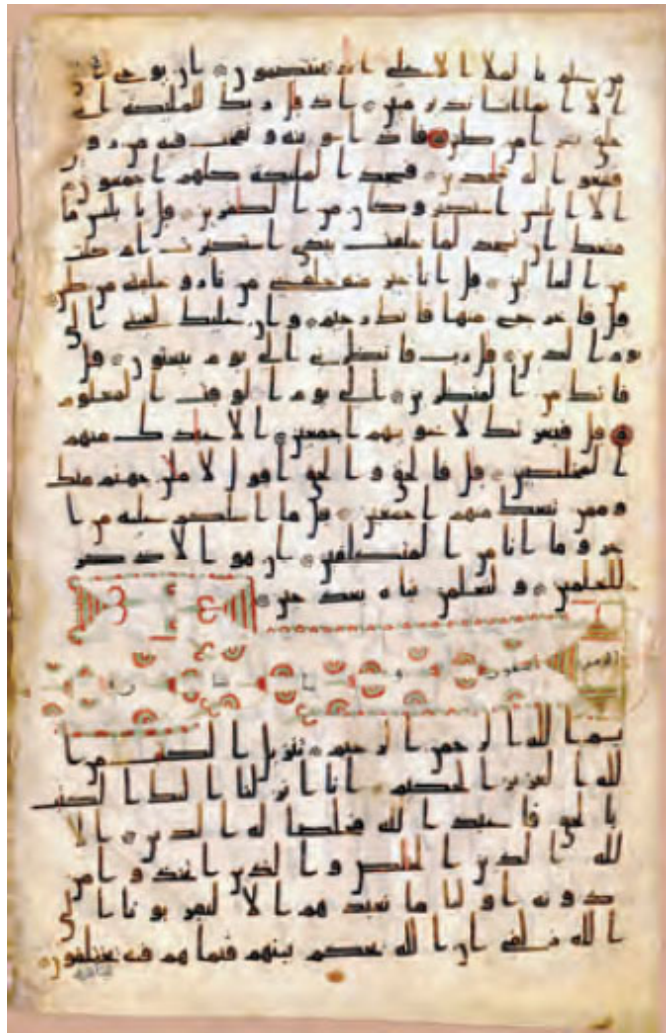 من علم بالملا الاعلى اذ يختصمون ان يوحى الي
الا انما انا نذير مبين اذ قال ربك للملئكة اني
خلق بشرا من طين فاذا سويته ونفخت فيه من رو
فقعوا له سجدين فسجد الملئكة كلهم اجمعون
الا ابليس استكبر وكان من الكفرين قال يابليس ما
منعك ان تسجد لما خلقت بيدي استكبرت ام كنت
من العالين قال انا خير منه خلقتني من نار وخلقته من طين
قال فاخرج منها فانك رجيم وان عليك لعنتي الى
يوم الدين قال رب فانظرني الى يوم يبعثون قال
فانك من المنظرين الى يوم الوقت المعلوم
قال فبعزتك لاغوينهم اجمعين الا عبادك منهم
المخلصين قال فالحق والحق اقول لاملن جهنم منك
وممن تبعك منهم اجمعين قل ما اسلكم عليه من ا
جر وما انا من المتكلفين ان هو الا ذكر
للعلمين ولتعلمن نباه بعد حين
الزمر
بسم الله الرحمن الرحيم تنزيل الكتب من ا
لله العزيز الحكيم انا انزلنا اليك الكتب
بالحق فاعبد الله مخلصا له الدين الا
لله الدين الخالص والذين اتخذوا من
دونه اوليا ما نعبدهم الا ليقربونا الى
الله زلفى ان الله يحكم بينهم فيما هم فيه يختلفون